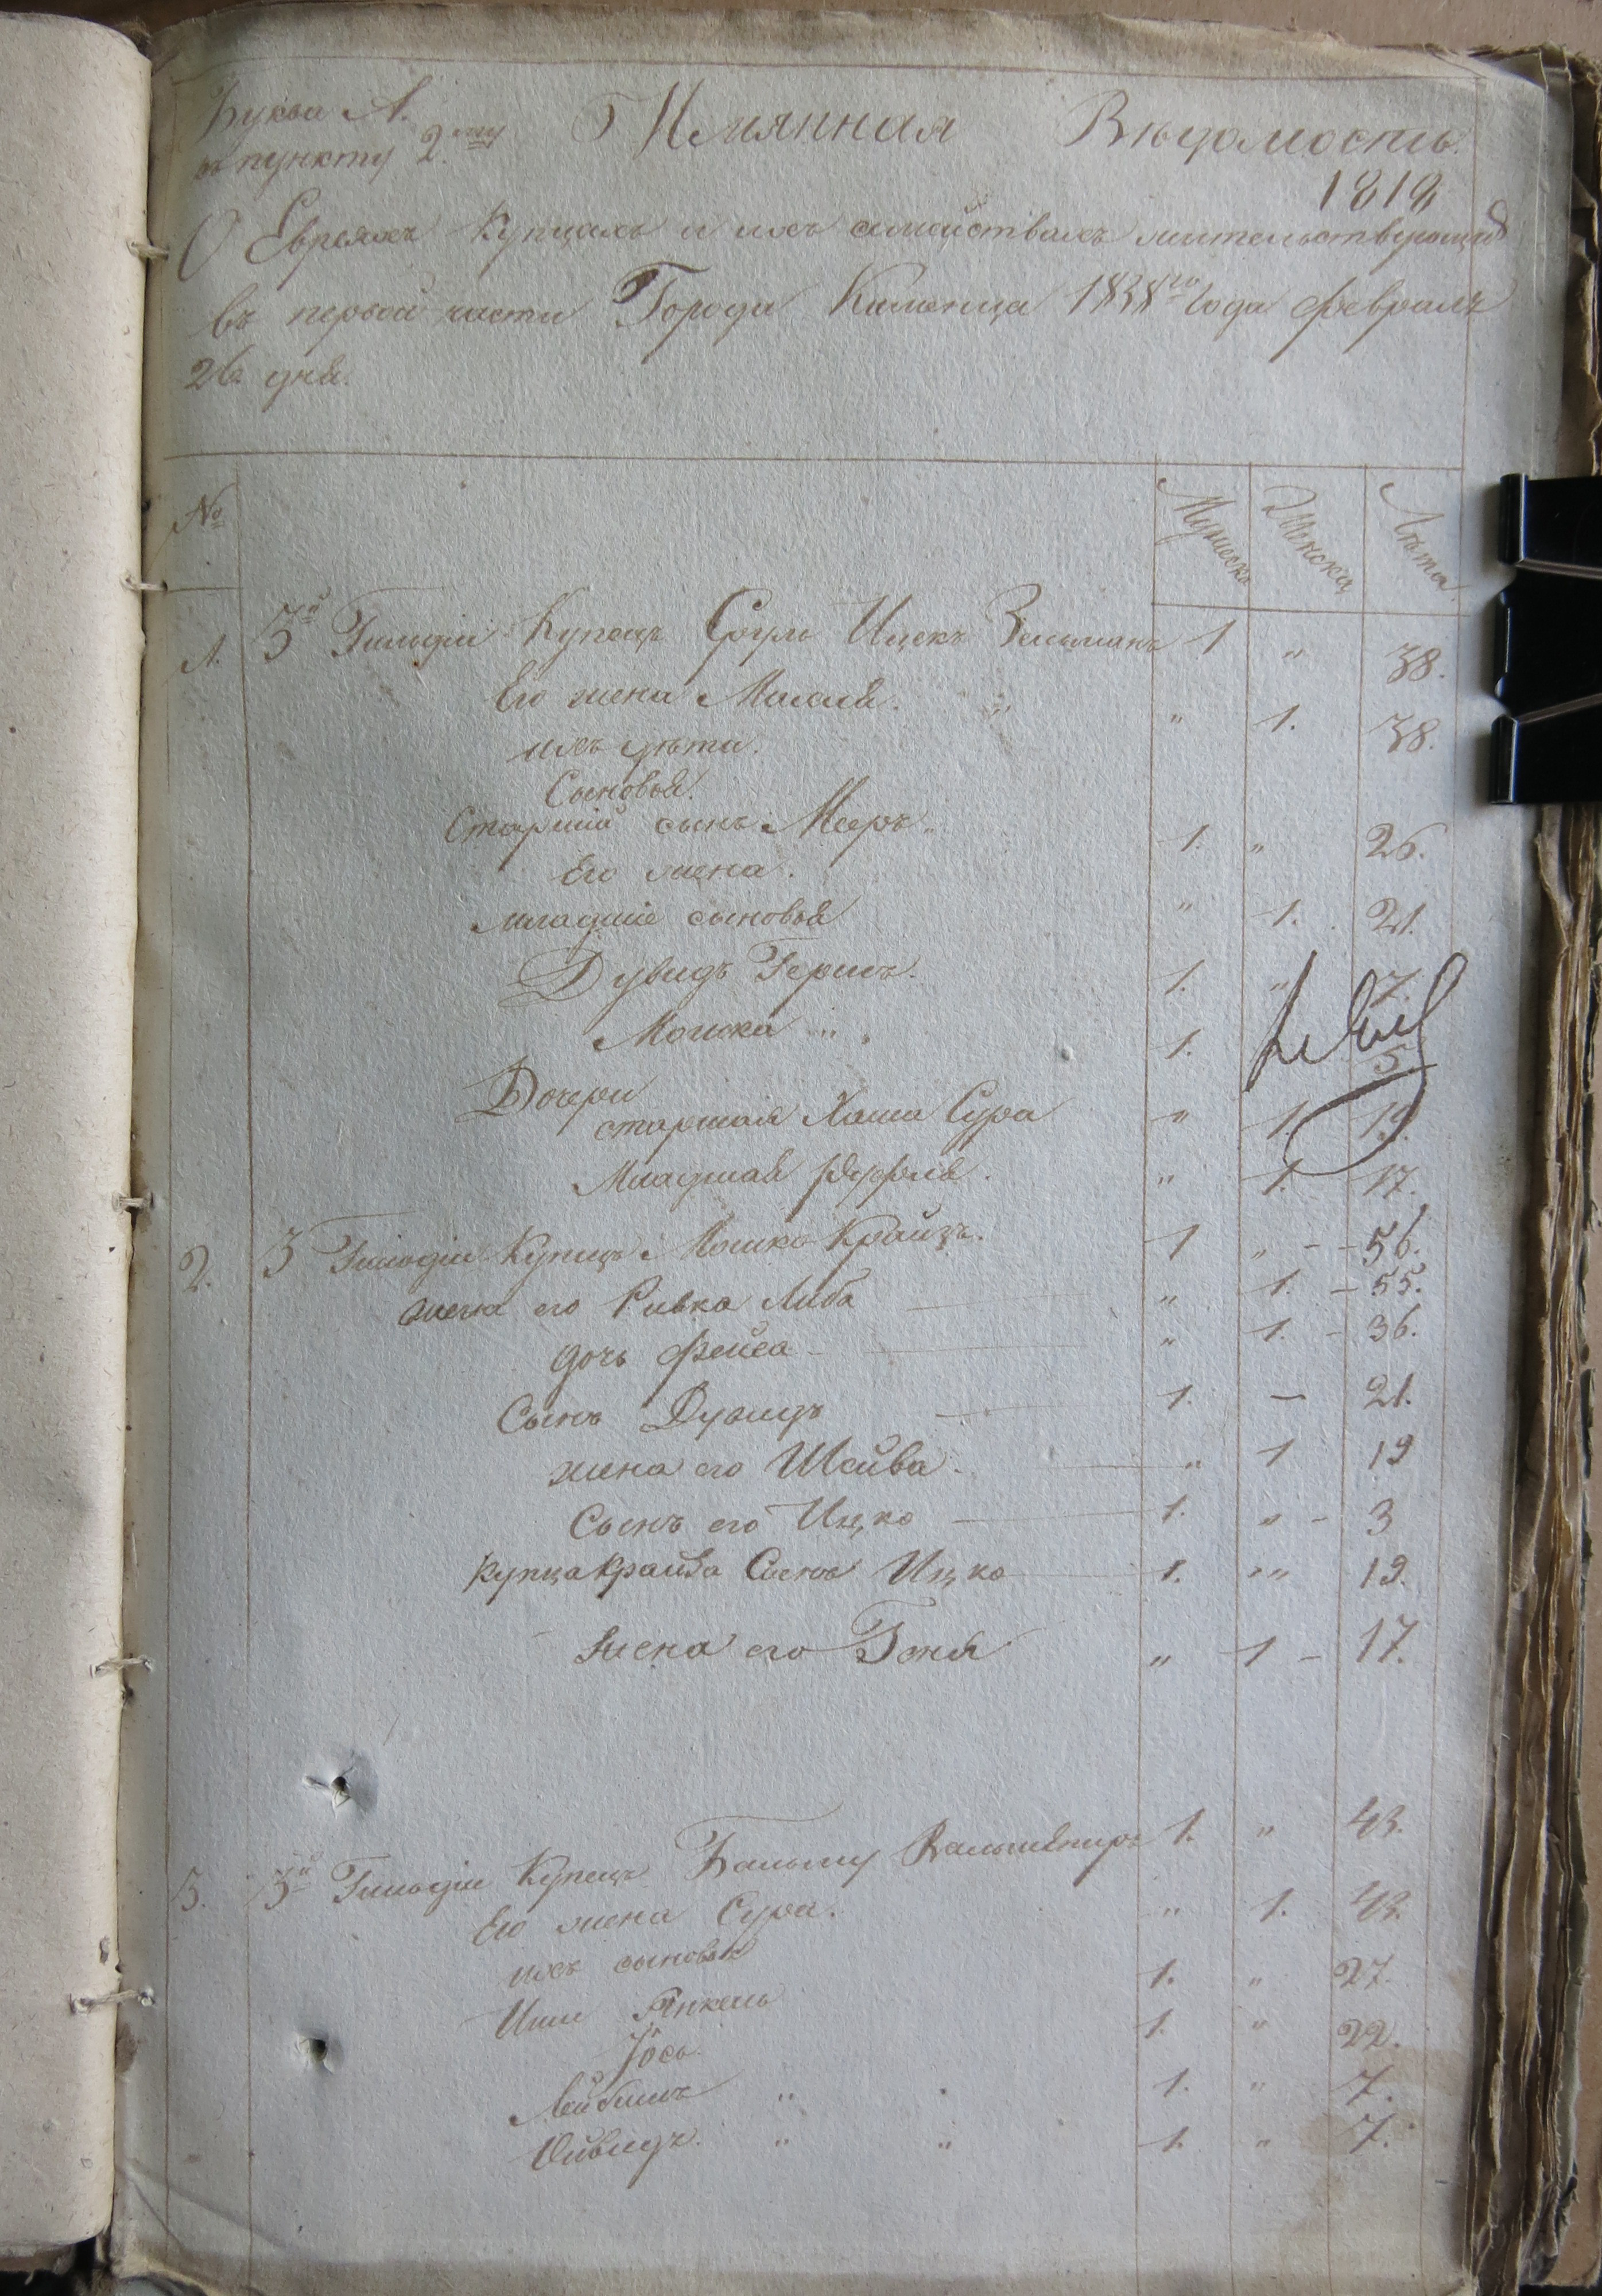 Буква А.
къ пункту 2.му
Имянная Вѣдомость.
1818
О Евреяхъ Купцахъ и ихъ семействахъ жительствующихъ
въ первой части Города Каменца 1818го Года февраля
26 дня.
№ Мужеска Женска Лѣта
1. 3й Гильдіи Купецъ Сруль Ицекъ Зельманъ 1 „ 38.
Его жена Малля. „ „ 1. 38.
ихъ дѣти.
Сыновья.
Старшій сынъ Мееръ „ 1. „ 26.
Его жена. „ 1. 21.
младшіе сыновья
Дувидъ Гершъ. 1. „ 7.
Мошка „ 1. 5.
Дочери
старшая Хаша Сура „ 1. 19.
Младшая „ 1. 17.
2. 3 Гильдіи Купецъ Мошко Крайзъ. 1 „ - - 56.
жена его Ривка Либа „ 1. - 55.
дочь Фейга „ 1. - 36.
Сынъ Дувидъ 1. — 21.
жена его Шейва. „ 1 19
Сынъ его Ицко 1. „ - 3
Купца Крайза Сынъ Ицко 1. „„ 19.
жена его Геня „ 1 - 17.
3. 3й Гильдіи Купецъ 1. „ 43.
Его жена Сура. „ 1. 43.
ихъ сыновья
Янкель 1. „ 27.
Іось. 1. „ 22.
Лейбишъ „ 1. „ 7.
Дивидъ. „ „ 1. „ 7.